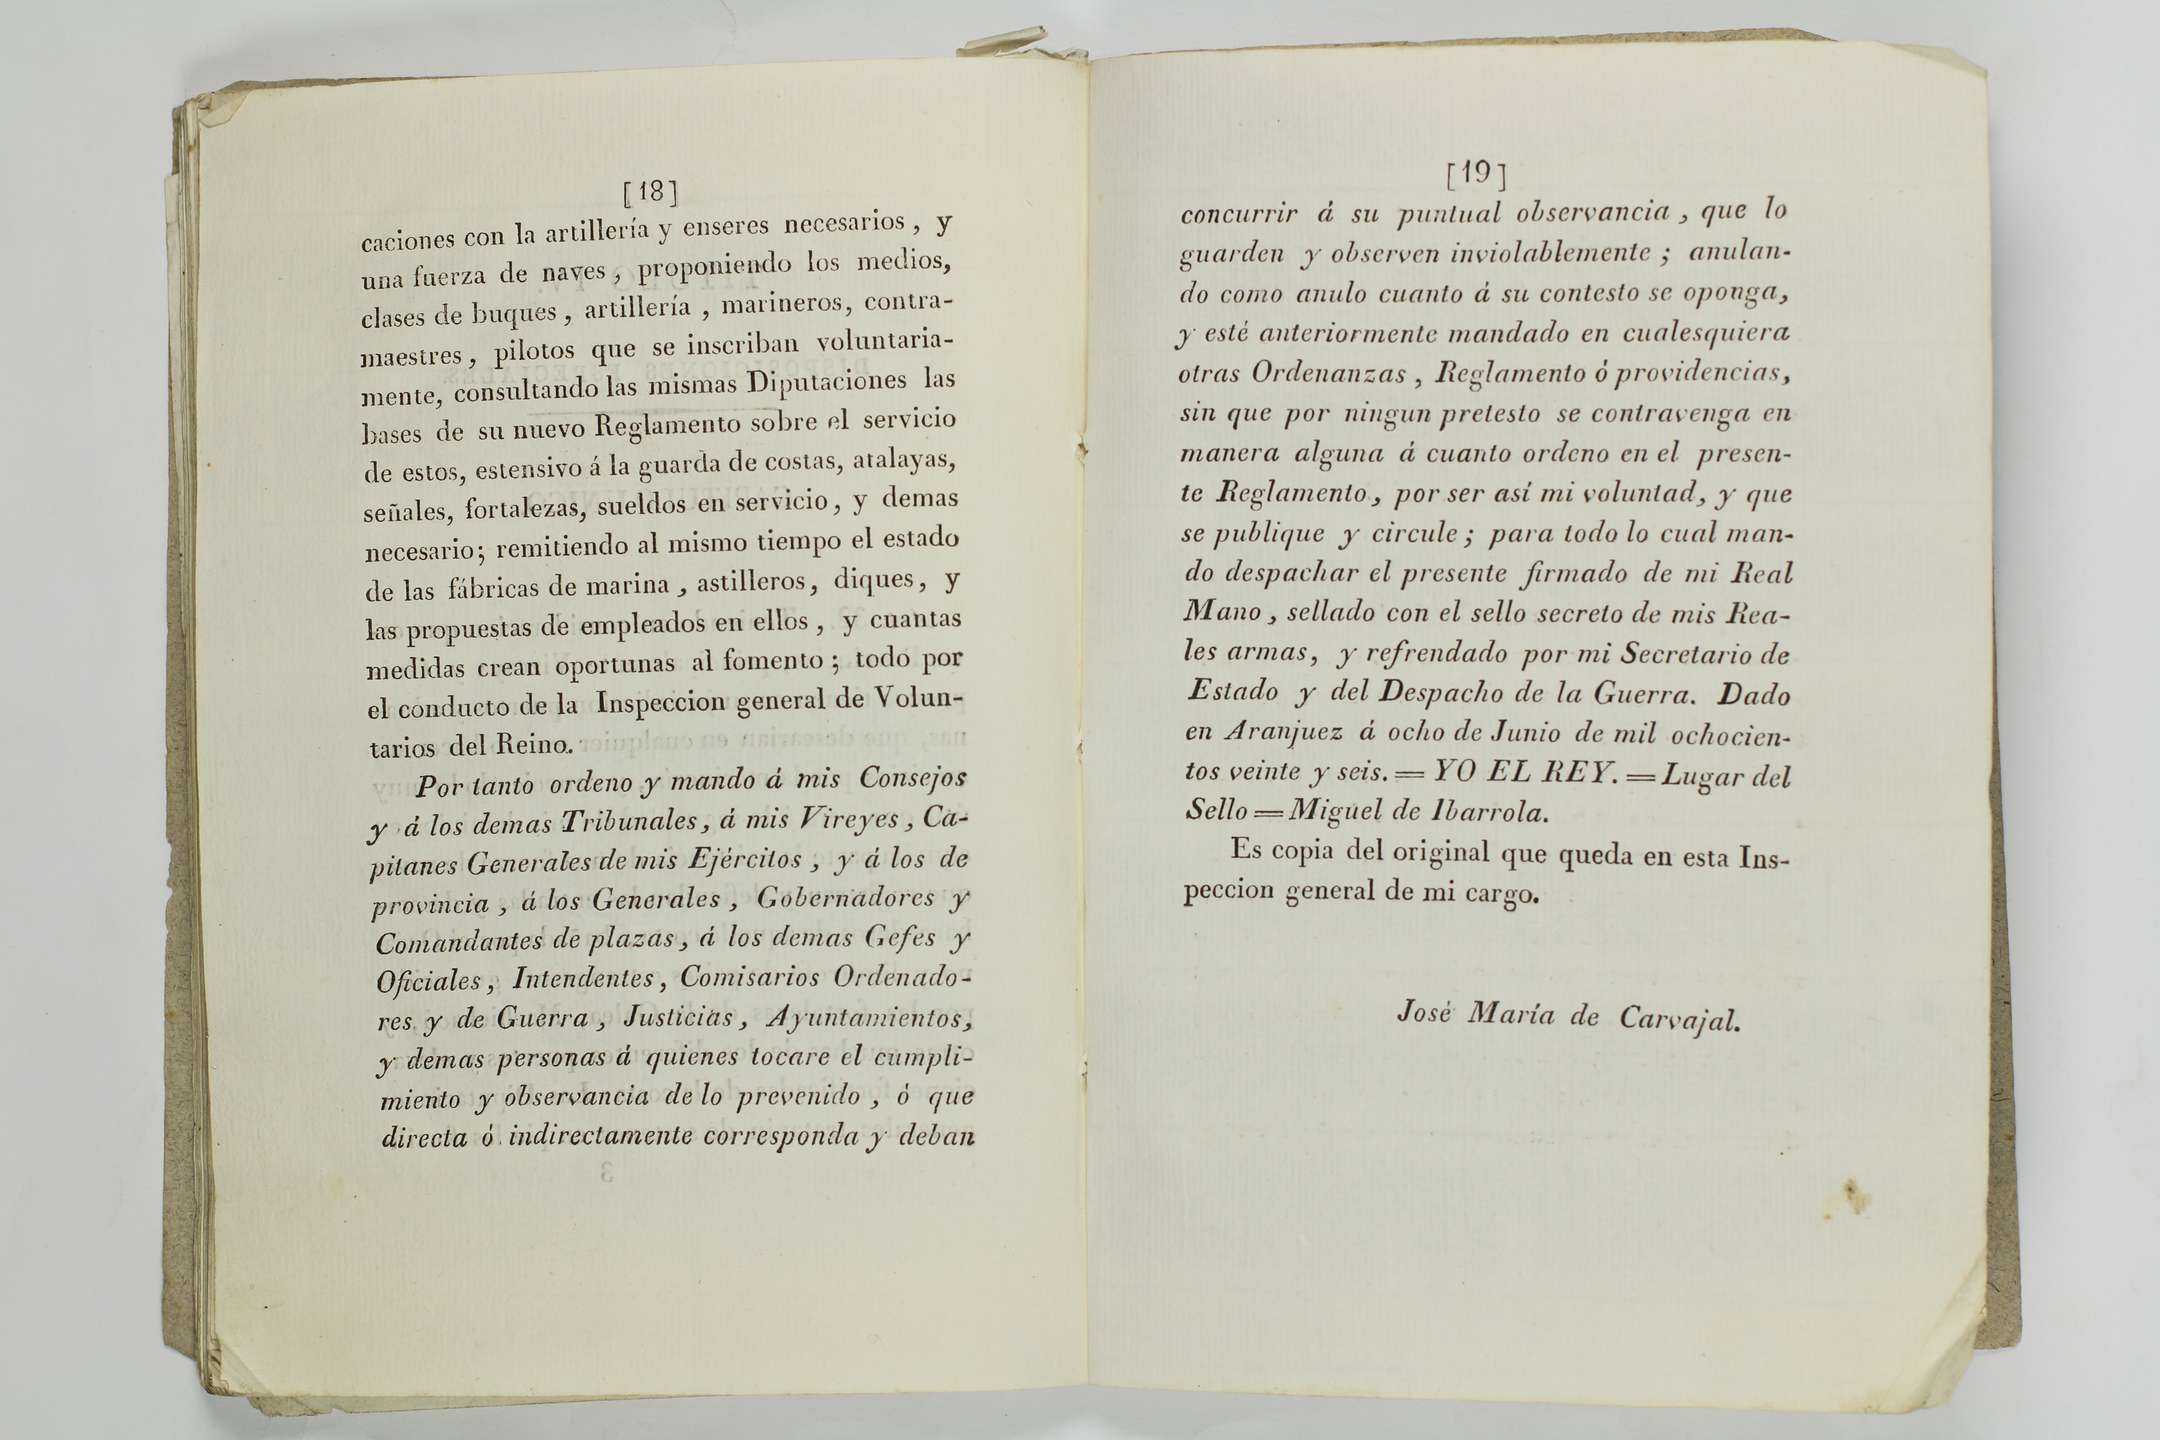 [18]
caciones con la artillería y enseres necesarios, y
una fuerza de naves, proponiendo los medios,
clases de buques, artillería, marineros, contra-
maestres, pilotos que se inscriban voluntaria-
mente, consultando las mismas Diputaciones las
bases de su nuevo Reglamento sobre el servicio
de estos, estensivo á la guarda de costas, atalayas,
señales, fortalezas, sueldos en servicio, y demas
necesario; remitiendo al mismo tiempo el estado
de las fábricas de marina, astilleros, diques, y
las propuestas de empleados en ellos, y cuantas
medidas crean oportunas al fomento; todo por
el conducto de la Inspeccion general de Volun-
tarios del Reino.
Por tanto ordeno y mando á mis Consejos
y á los demas Tribunales, á mis Vireyes, Ca-
pitanes Generales de mis Ejércitos, y á los de
provincia, á los Generales, Gobernadores y
Comandantes de plazas, á los demas Gefes y
Oficiales, Intendentes, Comisarios Ordenado-
res y de Guerra, Justicias, Ayuntamientos,
y demas personas á quienes tocare el cumpli-
miento y observancia de lo prevenido, ó que
directa ó indirectamente corresponda y deban
[19]
concurrir á su puntual observancia, que lo
guarden y observen inviolablemente; anulan-
do como anulo cuanto á su contesto se oponga,
y esté anteriormente mandado en cualesquiera
otras Ordenanzas, Reglamento ó providencias,
sin que por ningun pretesto se contravenga en
manera alguna á cuanto ordeno en el presen-
te Reglamento, por ser así mi voluntad, y que
se publique y circule; para todo lo cual man-
do despachar el presente firmado de mi Real
Mano, sellado con el sello secreto de mis Rea-
les armas, y refrendado por mi Secretario de
Estado y del Despacho de la Guerra. Dado
en Aranjuez á ocho de Junio de mil ochocien-
tos veinte y seis. = YO EL REY. = Lugar del
Sello = Miguel de Ibarrola.
Es copia del original que queda en esta Ins-
peccion general de mi cargo.
José María de Carvajal.